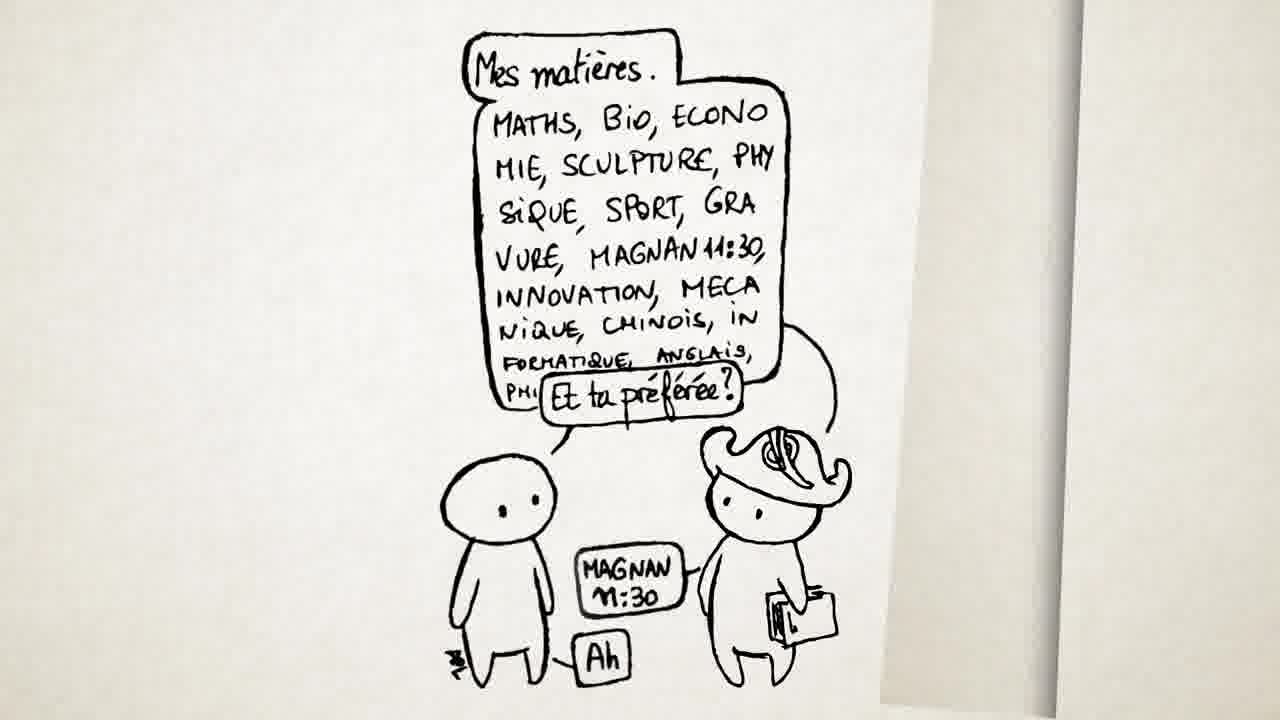 Mes matières.
MATHS, Bio, ECONO
MIE, SCULPTURE, PHY
SiQUE, SPORT, GRA
VURE, MAGNAN 11:30,
INNOVATION, MECA
NiQUE, CHINOiS, iN
FORMATiQUE, ANGLAiS,
PHi
Et ta préférée?
MAGNAN
11:30
Ah